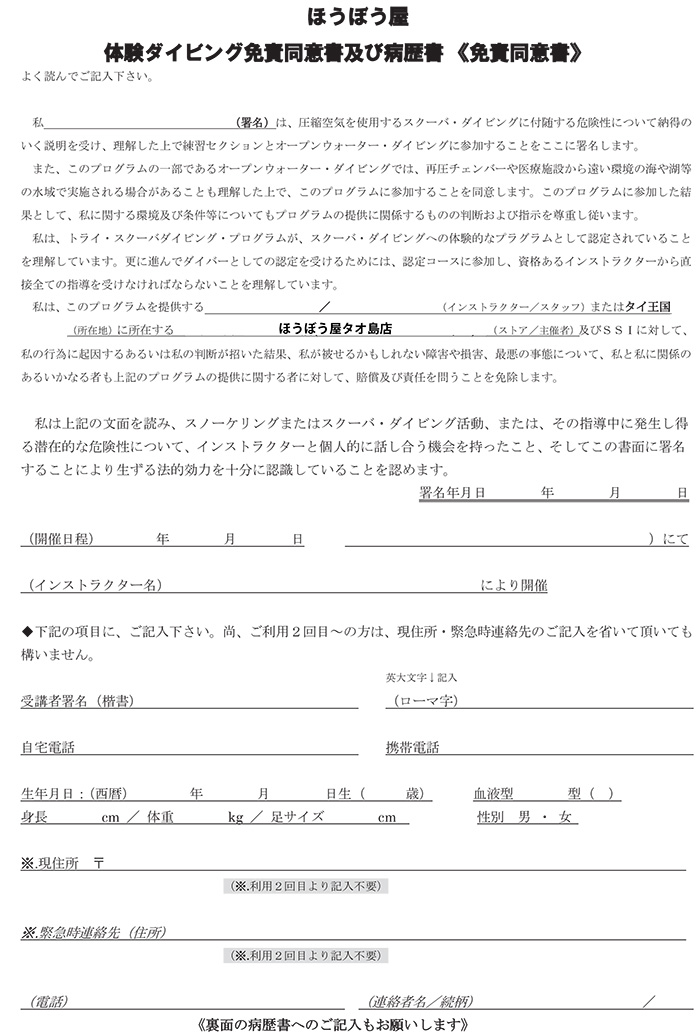 ほうぼう屋
体験ダイビング免責同意書及び病歴書 《免責同意書》
よく読んでご記入下さい。
私　　　　　　　　　　　　　　（署名）は、圧縮空気を使用するスクーバ・ダイビングに付随する危険性について納得の
いく説明を受け、理解した上で練習セクションとオープンウォーター・ダイビングに参加することをここに署名します。
また、このプログラムの一部であるオープンウォーター・ダイビングでは、再圧チェンバーや医療施設から遠い環境の海や湖等
の水域で実施される場合があることも理解した上で、このプログラムに参加することを同意します。このプログラムに参加した結
果として、私に関する環境及び条件等についてもプログラムの提供に関係するものの判断および指示を尊重し従います。
私は、トライ・スクーバダイビング・プログラムが、スクーバ・ダイビングへの体験的なプラグラムとして認定されていること
を理解しています。更に進んでダイバーとしての認定を受けるためには、認定コースに参加し、資格あるインストラクターから直
接全ての指導を受けなければならないことを理解しています。
私は、このプログラムを提供する　　　　　　　　／　　　　　　　　（インストラクター／スタッフ）またはタイ王国
（所在地）に所在する　　　　　　ほうぼう屋タオ島店　　　　　　（ストア／主催者）及びＳＳＩに対して、
私の行為に起因するあるいは私の判断が招いた結果、私が被せるかもしれない障害や損害、最悪の事態について、私と私に関係の
あるいかなる者も上記のプログラムの提供に関する者に対して、賠償及び責任を問うことを免除します。
私は上記の文面を読み、スノーケリングまたはスクーバ・ダイビング活動、または、その指導中に発生し得
る潜在的な危険性について、インストラクターと個人的に話し合う機会を持ったこと、そしてこの書面に署名
することにより生ずる法的効力を十分に認識していることを認めます。
署名年月日　　　　年　　　　月　　　　日
（開催日程）　　　　年　　　　月　　　　日　　　　　　　　　　　　　　　　　　）にて
（インストラクター名）　　　　　　　　　　　　　　　　　　により開催
◆下記の項目に、ご記入下さい。尚、ご利用２回目～の方は、現住所・緊急時連絡先のご記入を省いて頂いても
構いません。
英大文字↓記入
受講者署名（楷書）　　　　　　　　　　　　（ローマ字）
自宅電話　　　　　　　　　　　　携帯電話
生年月日：（西暦）　　　　年　　　　月　　　　日生（　　　歳）　　血液型　　　　型（　）
身長　　　　cm ／ 体重　　　　kg ／ 足サイズ　　　　cm　　　　性別　男 ・ 女
※.現住所　〒
（※.利用２回目より記入不要）
※.緊急時連絡先（住所）
（※.利用２回目より記入不要）
（電話）　　　　　　　　　　　　（連絡者名／続柄）　　　　　　　　　　／
《裏面の病歴書へのご記入もお願いします》